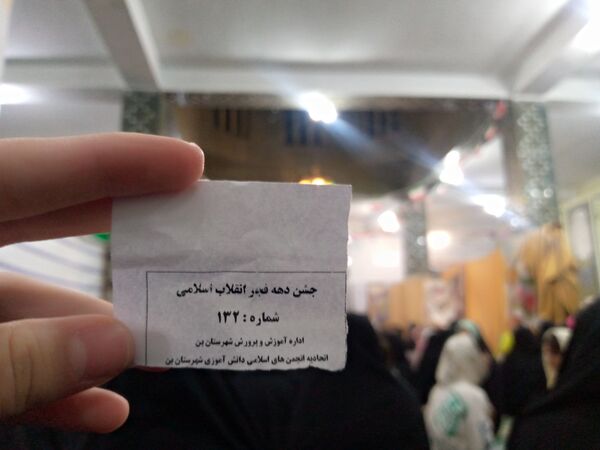 جشن دهه فجر انقلاب اسلامی
شماره: ۱۳۲
اداره آموزش و پرورش شهرستان بن
اتحادیه انجمن های اسلامی دانش آموزی شهرستان بن